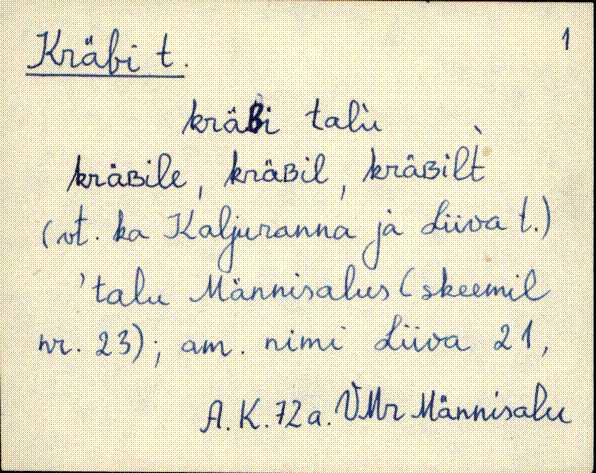 Kräbi t. 1
kräʙi talu
kräʙile, kräʙil, kräʙilt
(vt. ka Kaljuranna ja Liiva t.)
'talu Männisalus (skeemil
nr. 23); am. nimi Liiva 21,
A.K. 72 a. VMr Männisalu